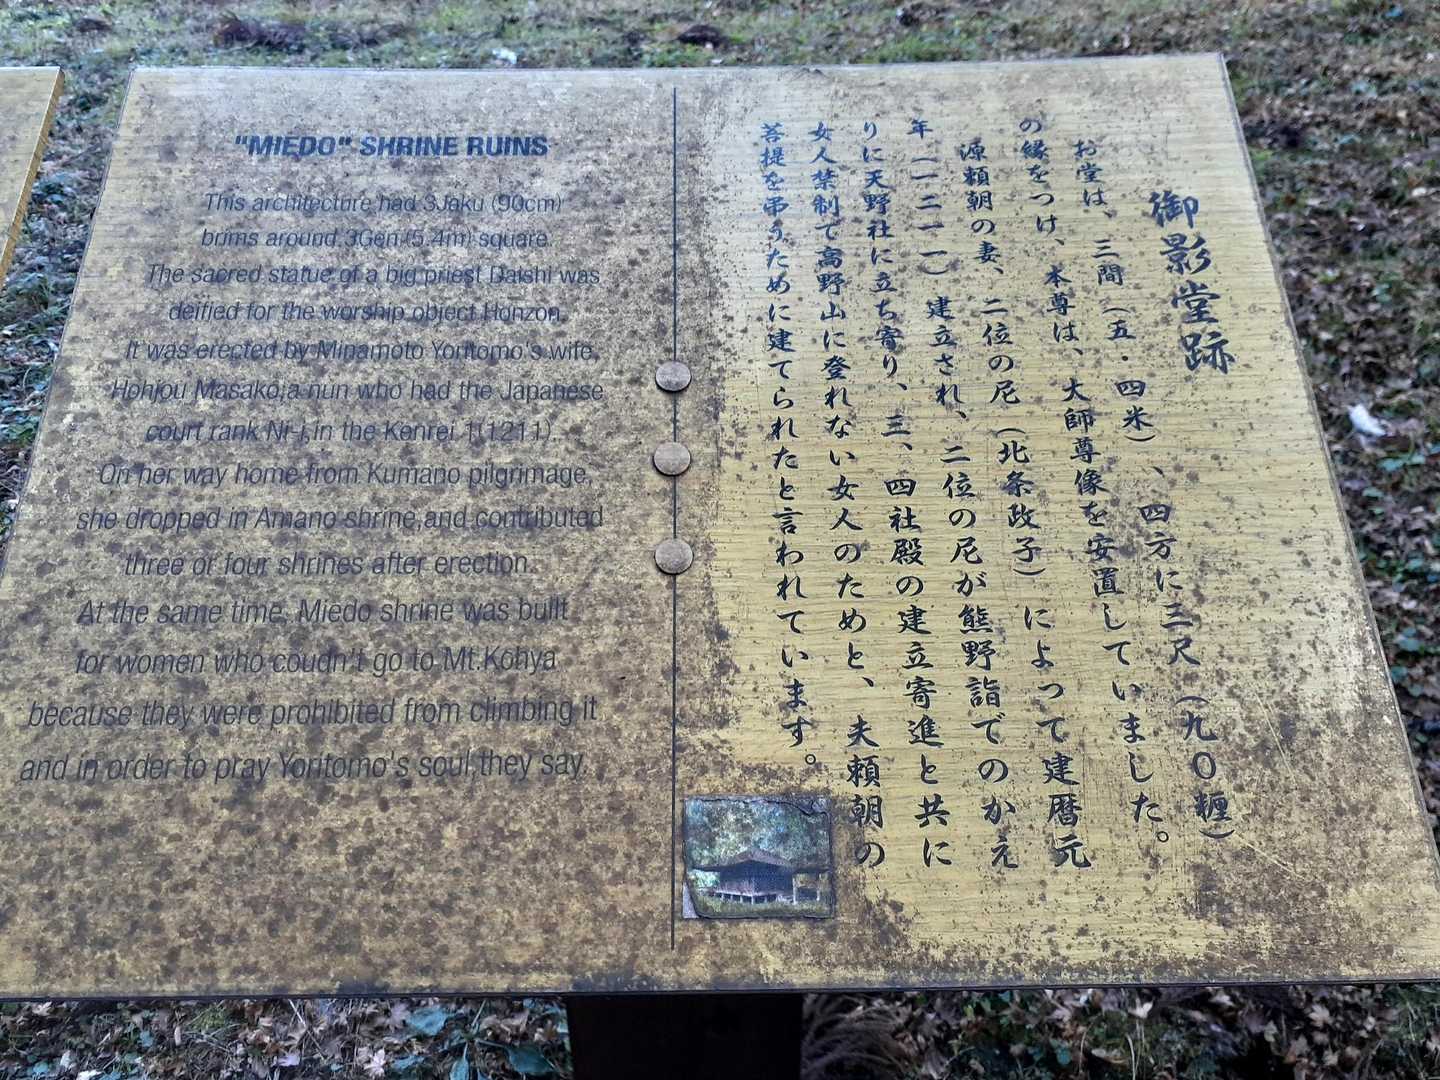 "MIEDO" SHRINE RUINS
This architecture had 3Jaku (90cm)
brims around 3Gen(5.4m) square.
The sacred statue of a big priest Daishi was
deified for the worship object Honzon.
It was erected by Minamoto Yoritomo's wife,
Hohjou Masako,a nun who had the Japanese
court rank Ni-i,in the Kenrei 1(1211).
On her way home from Kumano pilgrimage,
she dropped in Amano shrine,and contributed
three or four shrines after erection.
At the same time, Miedo shrine was built
for women who coudn't go to Mt.Kohya
because they were prohibited from climbing it
and in order to pray Yoritomo's soul,they say.
御影堂跡
お堂は、三間(五・四米)、四方に三尺(九〇糎)
の縁をつけ、本尊は、大師尊像を安置していました。
源頼朝の妻、二位の尼(北条政子)によって建暦元
年(一二一一)建立され、二位の尼が熊野詣でのかえ
りに天野社に立ち寄り、三、四社殿の建立寄進と共に
女人禁制で高野山に登れない女人のためと、夫頼朝の
菩提を弔うために建てられたと言われています。